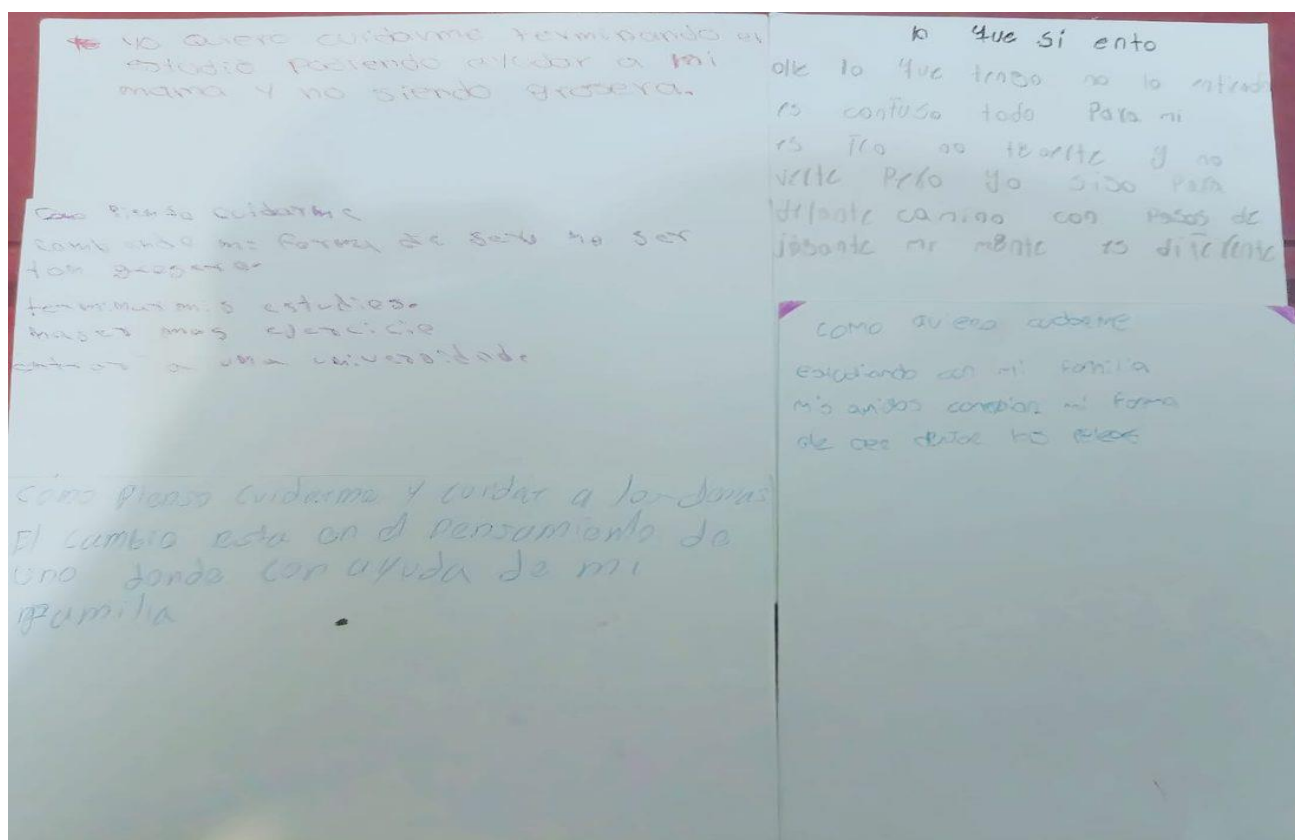 yo quiero cuidarme terminando el
estudio pudiendo ayudar a mi
mama y no siendo grosera.
Como Pienso cuidarme
cambiando mi forma de ser no ser
tan
terminar mis estudios.
haser mas ejercicie
entrar a una universidade
Como pienso cuidarme y cuidar a
El cambio esta en el pensamiento de
uno donde con ayuda de mi
familia
lo que si ento
lo que tengo no lo
es confuso todo Para mi
es no y no
verte Pero yo Para
delante camino con Pasos de
mi es diferente
como quiero cuidarme
estudiando con mi familia
mis amigos mi forma
de